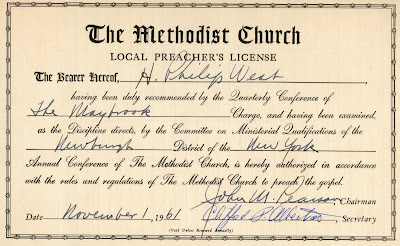 The Methodist Church
LOCAL PREACHER'S LICENSE
The Bearer Hereof, H. Philip West
having been duly recommended by the Quarterly Conference of
The Maybrook Charge, and having been examined,
as the Discipline directs, by the Committee on Ministerial Qualifications of the
Newburgh District of the New York
Annual Conference of The Methodist Church, is hereby authorized in accordance
with the rules and regulations of The Methodist Church to preach the gospel.
John M. Pearson Chairman
Date November 1, 1961 Secretary
(Void Unless Renewed Annually)